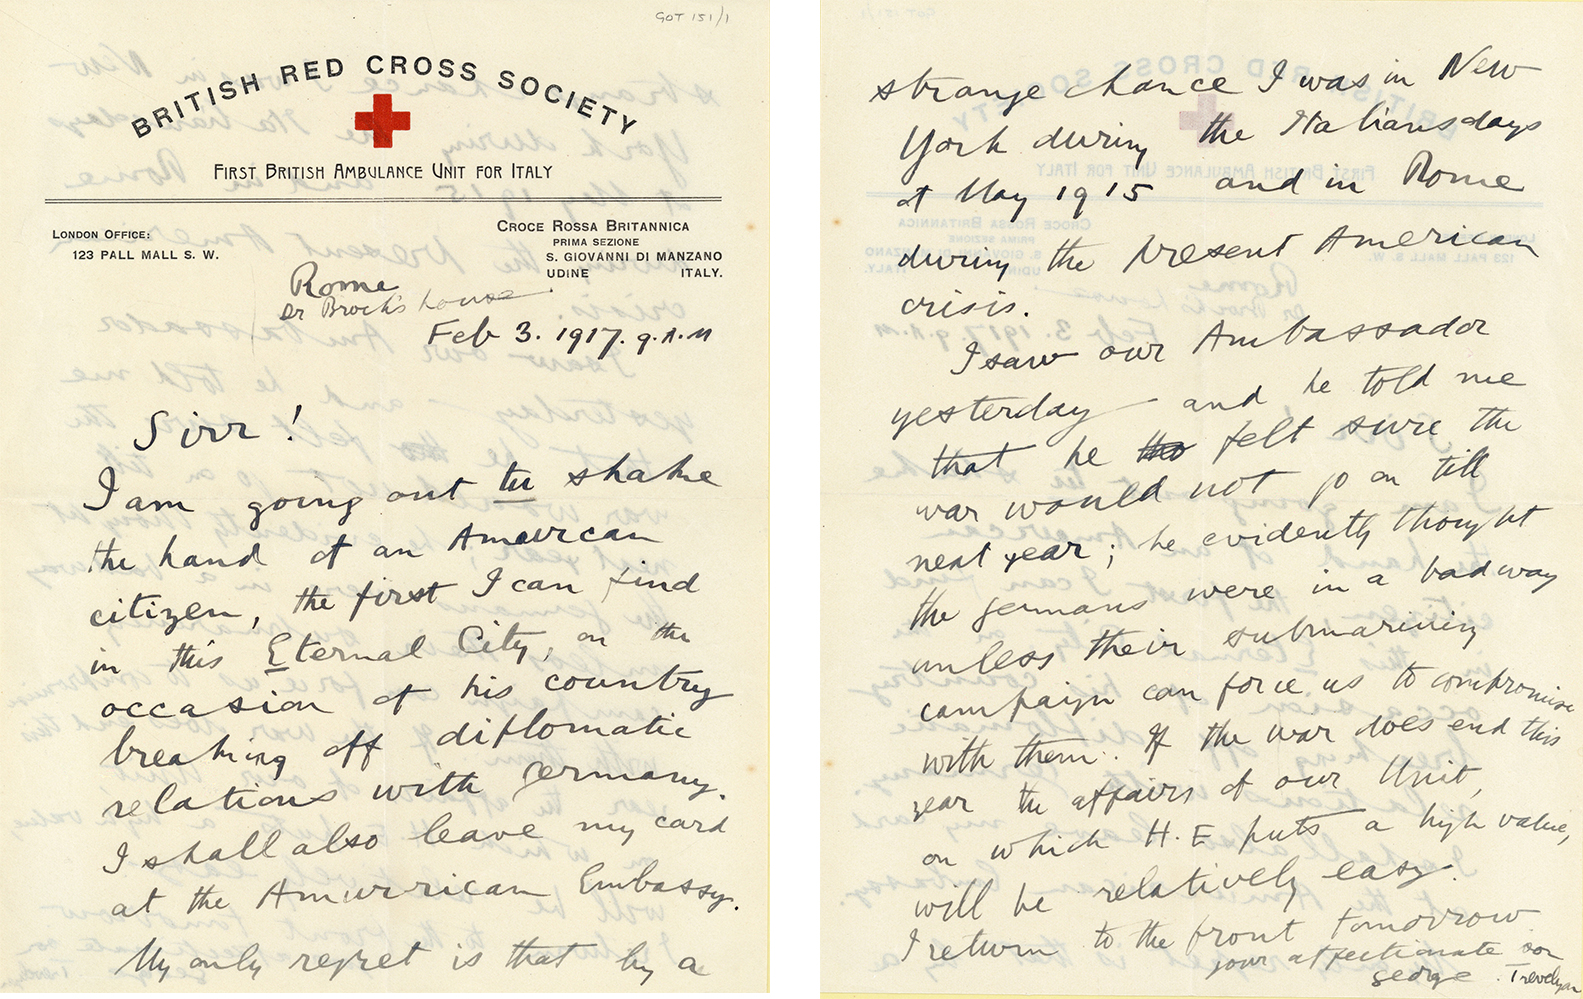 GOT 151/1
BRITISH RED CROSS SOCIETY
FIRST BRITISH AMBULANCE UNIT FOR ITALY
LONDON OFFICE:
123 PALL MALL S. W.
CROCE ROSSA BRITANNICA
PRIMA SEZIONE
S. GIOVANNI DI MANZANO
UDINE ITALY.
Rome
Brock's house
Feb 3. 1917. 9. A.M
Sirr!
I am going out tu shake
the hand of an Amurrcan
citizen, the first I can find
in this Eternal City, on the
occasion of his country
breaking off diplomatic
relations with Germany.
I shall also leave my card
at the Amurrican Embassy.
My only regret is that by a
strange chance I was in New
York during the Italians days
of May 1915 and in Rome
during the present American
crisis.
I saw our Ambassador
yesterday – and he told me
that he felt sure the
war would not go on till
next year; he evidently thought
the Germans were in a bad way
unless their submarining
campaign can force us to compromise
with them. If the war does end this
year the affairs of our Unit,
on which H. E puts a high value,
will be relatively easy.
I return to the front tomorrow
your affectionate son
George Trevelyan